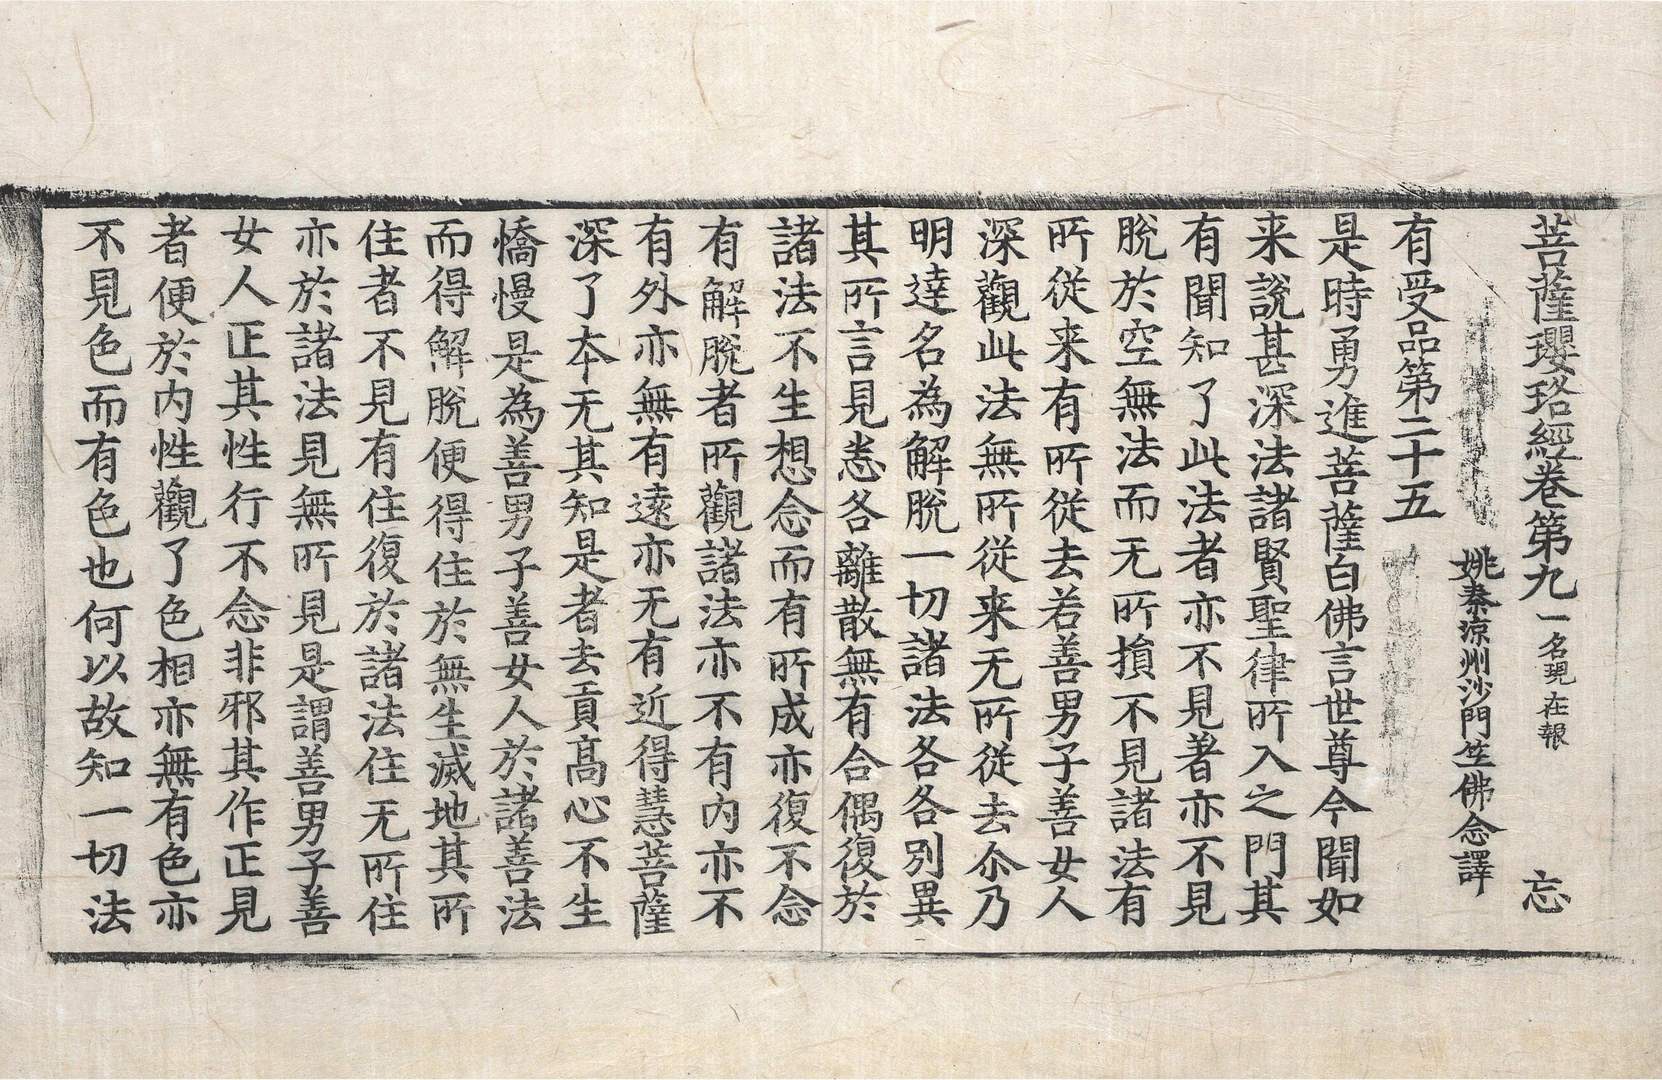 菩薩瓔珞經卷第九一名現在報 忘
姚秦涼州沙門竺佛念譯
有受品第二十五
是時勇進菩薩白佛言世尊今聞如
来說甚深法諸賢聖律所入之門其
有聞知了此法者亦不見著亦不見
脫於空無法而无所損不見諸法有
所從来有所從去若善男子善女人
深觀此法無所從来无所從去尒乃
明達名為解脫一切諸法各各別異
其所言見恚各離散無有合偶復於
諸法不生想念而有所成亦復不念
有解脫者所觀諸法亦不有內亦不
有外亦無有遠亦无有近得慧菩薩
深了本无其知是者去貢高心不生
憍慢是為善男子善女人於諸善法
而得解脫便得住於無生滅地其所
住者不見有住復於諸法住无所住
亦於諸法見無所見是謂善男子善
女人正其性行不念非邪其作正見
者便於內性觀了色相亦無有色亦
不見色而有色也何以故知一切法